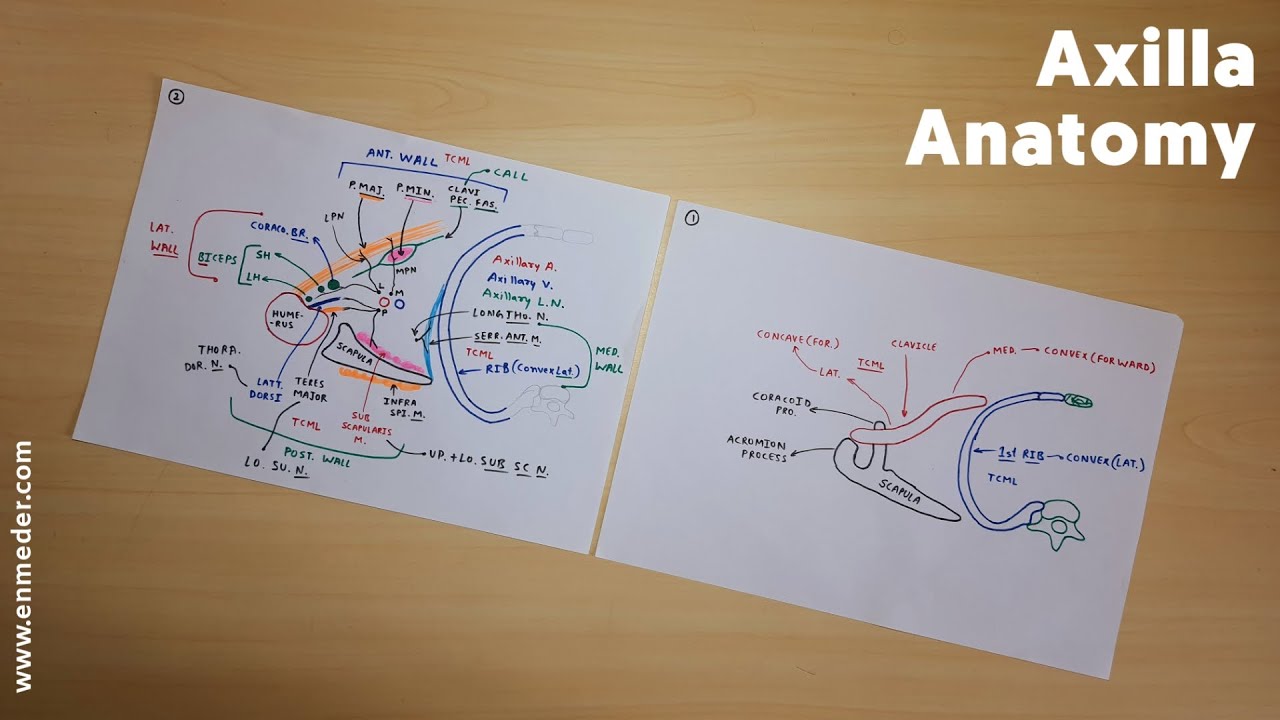 Axilla
Anatomy
www.enmeder.com
②
ANT. WALL TCML
CALL
P.MAJ.
P.MIN.
CLAVI
PEC. FAS.
LPN
LAT.
WALL
CORACO.BR.
BICEPS
SH
LH
MPN
L
M
P
HUME-
-RUS
Axillary A.
Axillary V.
Axillary L.N.
LONG THO. N.
SERR. ANT. M.
TCML
RIB (Convex Lat.)
MED.
WALL
SCAPULA
THORA.
DOR. N.
LATT.
DORSI
TERES
MAJOR
SUB
SCAPULARIS
M.
INFRA
SPI. M.
TCML
POST. WALL
LO. SU. N.
UP. + LO. SUB SC N.
①
CONCAVE (FOR.)
CLAVICLE
TCML
LAT.
MED.
CONVEX (FORWARD)
CORACOID
PRO.
ACROMION
PROCESS
SCAPULA
1st RIB
CONVEX (LAT.)
TCML